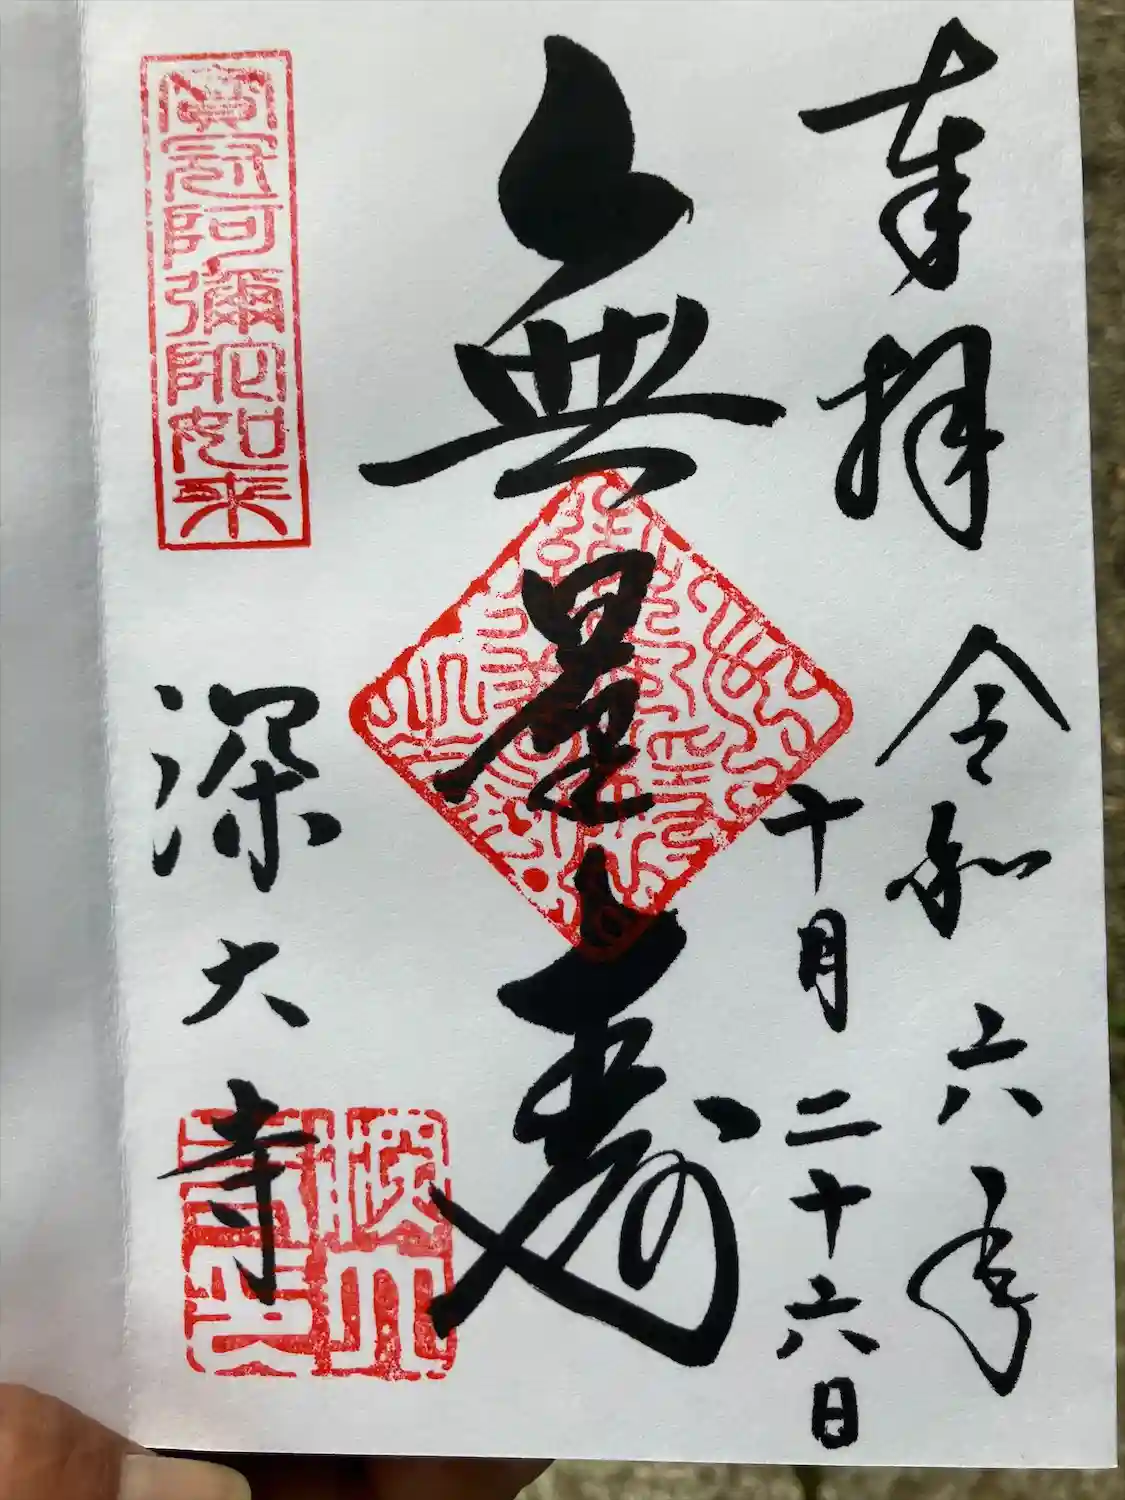 奉拝
令和六年
十月二十六日
無量壽
寳冠阿彌陀如来
深大寺
深大寺印